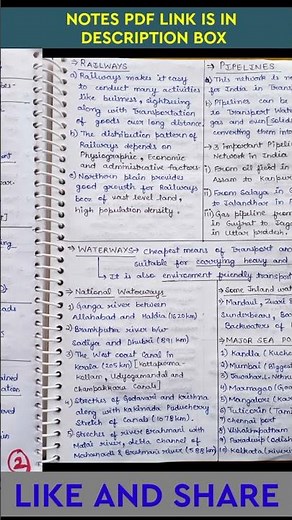 NOTES PDF LINK IS IN
DESCRIPTION BOX
→ RAILWAYS
a) Railways makes it easy
to conduct many activities
like business, sightseeing
along with Transportation
of goods over long distance.
b) The distribution pattern of
Railways depends on
Physiographic, Economic
and administrative factors
c) Northern plain provides
good growth for Railways
bcoz of vast level land,
high population density.
→ PIPELINES
a) This network is ne
for India in Trans
b) Pipelines can be
to Transport Wate
gas and even solids
converting them into
→ 3 important Pipeli
Network in India
i) From oil field in
Assam to Kanpur
ii) From Salaya in G
to Jalandhar in P
iii) Gas pipeline from
in Gujrat to Jag
in Uttar pradesh.
→ WATERWAYS → cheapest means of Transport and
suitable for carrying heavy and
↳ It is also environment friendly transport
→ National Waterways
1) Ganga river between
Allahabad and Haldia (1620 km)
2) Bramhputra river b/w
Sadiya and Dhubri (891 km)
3) The West coast Canal in
Kerala (205 km) [Kottapurma-
Kollam, Udyogamandal and
Champakkara Canals]
4) Streches of Godavari and Krishna
along with Kakinada Puducherry
Stretch of Canals (1078 km).
5) Streches of river Brahmani with
Matai river, delta channel of
Mahanadi & Brahmani river (588 km)
→ Some Inland wate
→ Mandavi, Zuari &
Sunderbans, Bar
Backwaters of
→ MAJOR SEA PO
1) Kandla (Kuchch
2) Mumbai (Biggest
3) Jawaharl. Nehru
4) Marmagao (Goa
5) Mangalore (Kar
6) Tuticorin (Tami
7) Chennai port
8) Vishakhapatnam
9) Paradwip (Odish
10) Kolkata (riverin
2
LIKE AND SHARE